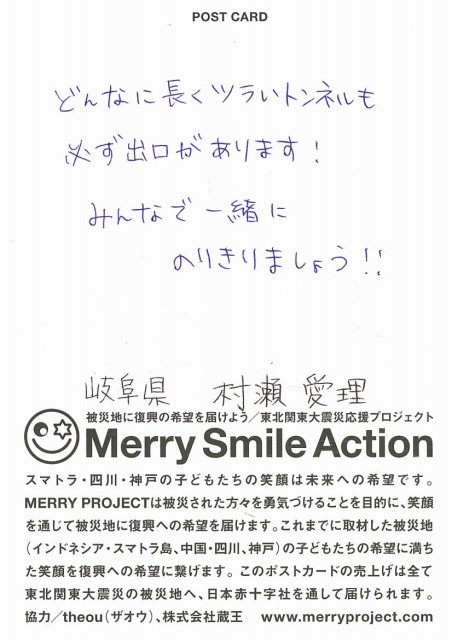 POST CARD
どんなに長くツラいトンネルも
必ず出口があります!
みんなで一緒に
のりきりましょう!!
岐阜県 村瀬愛理
被災地に復興の希望を届けよう/東北関東大震災応援プロジェクト
Merry Smile Action
スマトラ・四川・神戸の子どもたちの笑顔は未来への希望です。
MERRY PROJECTは被災された方々を勇気づけることを目的に、笑顔
を通じて被災地に復興への希望を届けます。これまでに取材した被災地
(インドネシア・スマトラ島、中国・四川、神戸)の子どもたちの希望に満ち
た笑顔を復興への希望に繋げます。このポストカードの売上げは全て
東北関東大震災の被災地へ、日本赤十字社を通して届けられます。
協力/theou(ザオウ)、株式会社蔵王 www.merryproject.com